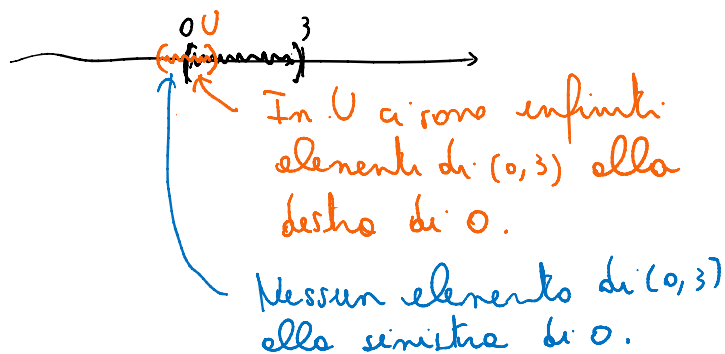 0 U 3
In U ci sono infiniti
elementi di (0,3) alla
destra di 0.
Nessun elemento di (0,3)
alla sinistra di 0.